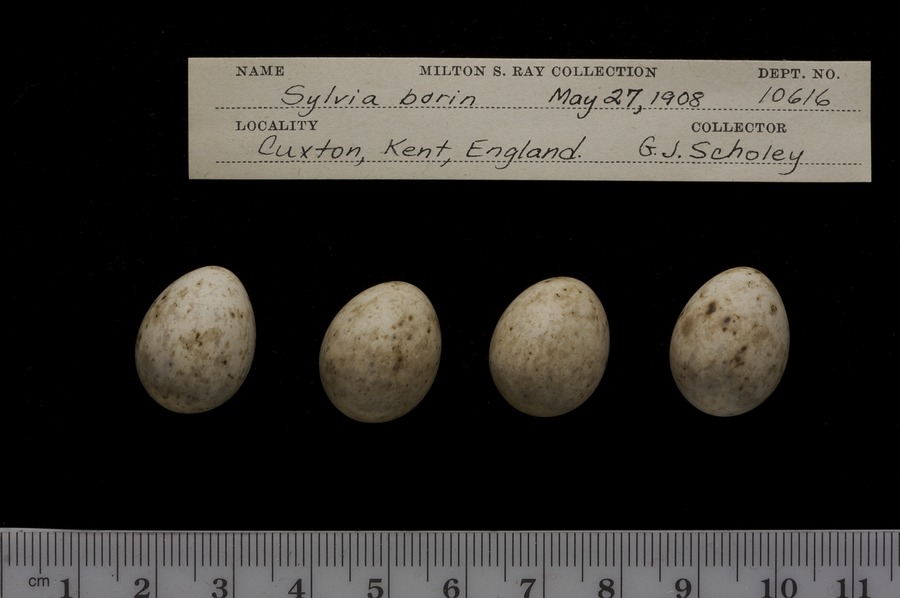 NAME MILTON S. RAY COLLECTION DEPT. NO.
Sylvia borin May 27, 1908 10616
LOCALITY COLLECTOR
Cuxton, Kent, England. G. J. Scholey
cm 1 2 3 4 5 6 7 8 9 10 11